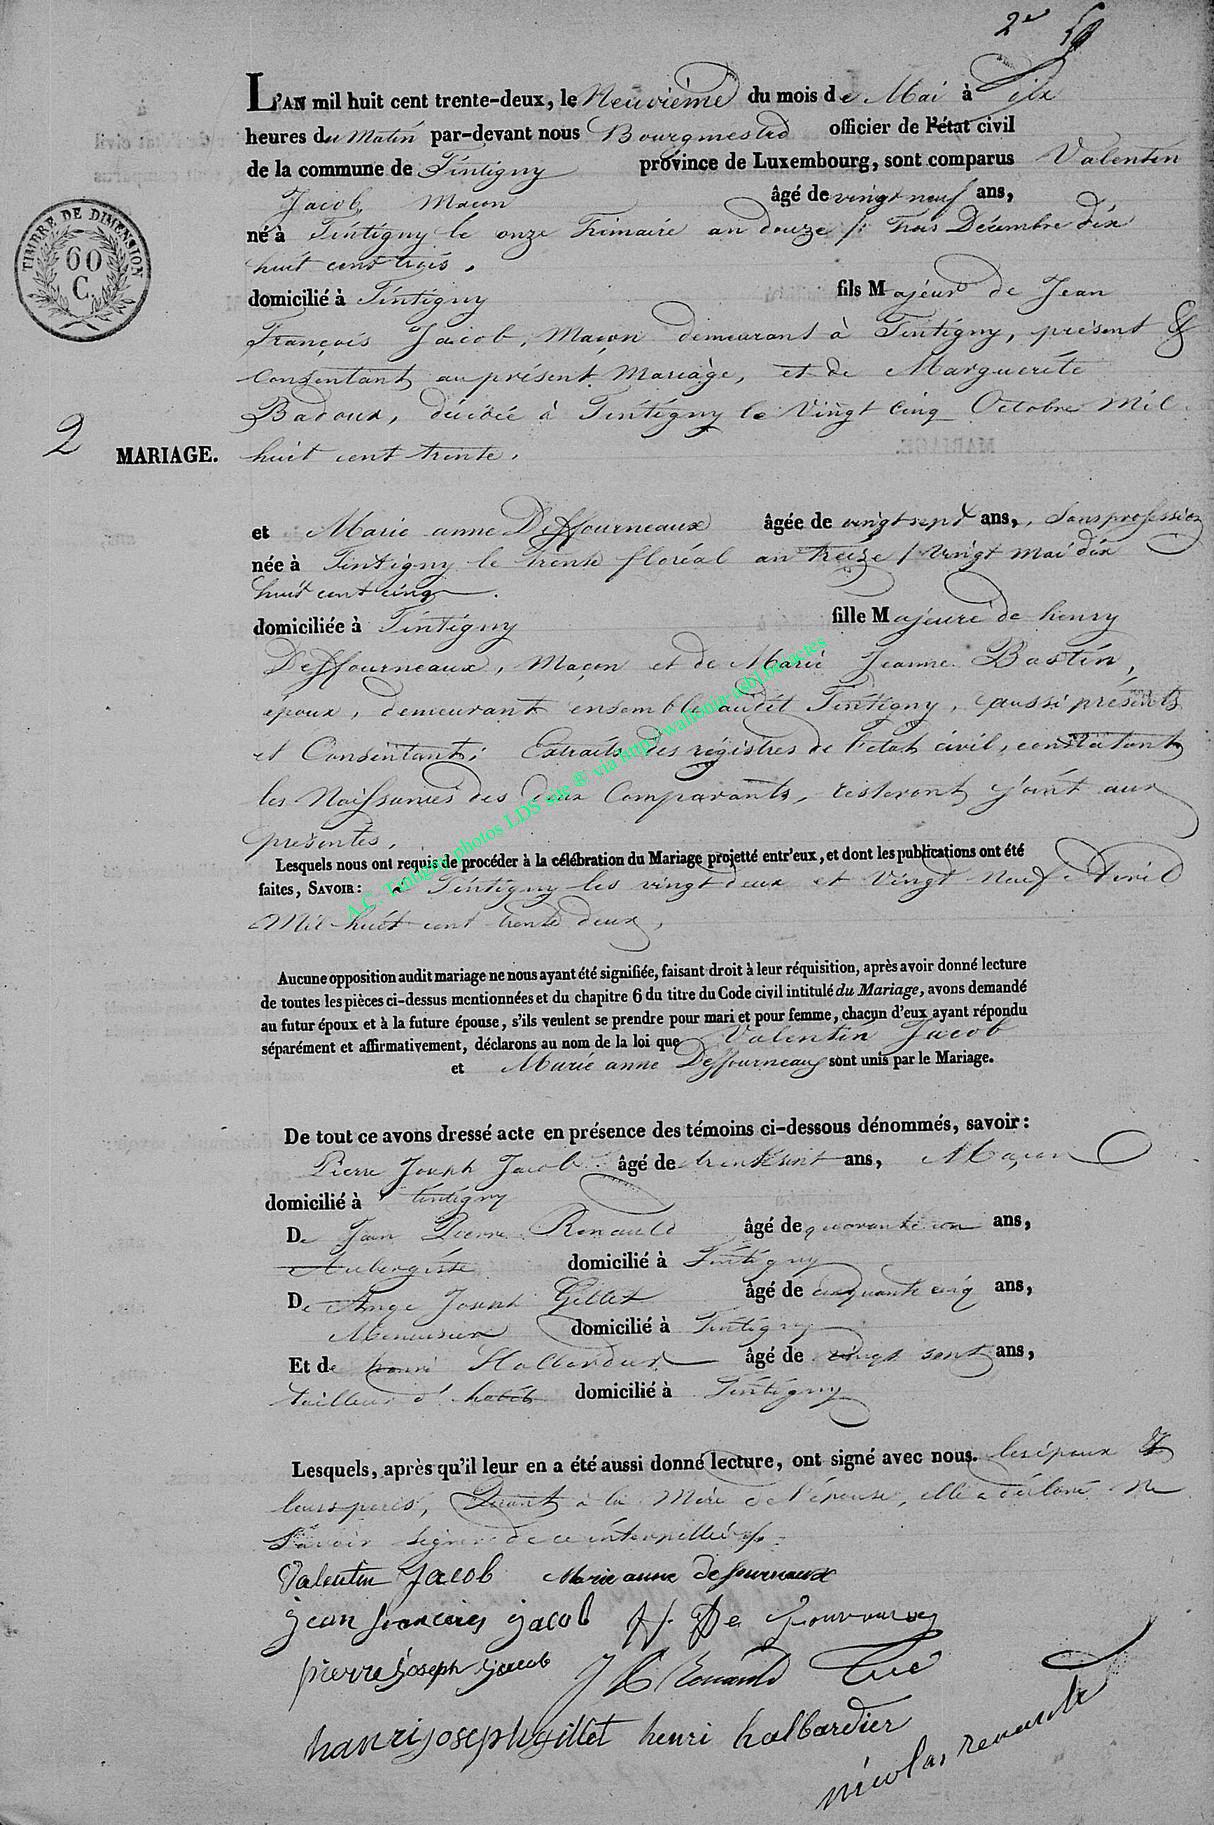 2e 59
L'AN mil huit cent trente-deux, le Neuvième du mois de Mai à Dix
heures du Matin par-devant nous Bourgmestre officier de l'état civil
de la commune de Tintigny province de Luxembourg, sont comparus Valentin
Jacob, Macon âgé de vingt neuf ans,
né à Tintigny le onze Frimaire an douze /: Trois Décembre dix
huit cent trois.
domicilié à Tintigny fils Majeur de Jean
François Jacob, Maçon demeurant à Tintigny, présent &
Consentant au présent Mariage, et de Marguerite
Badoux, décédée à Tintigny le Vingt Cinq Octobre Mil
huit cent trente.
2 MARIAGE.
et Marie anne Deffourneaux âgée de vingt sept ans, Sans profession
née à Tintigny le Trente floréal an treize / Vingt mai dix
huit cent cinq.
domiciliée à Tintigny fille Majeure de henry
Deffourneaux, Maçon et de Marie Jeanne Bastin,
epoux, demeurant ensemble audit Tintigny, aussi présents
et Consentant; Extraits des régistres de l'etat civil, constatant
les Naissances des deux Comparants, resteront joint aux
présentes.
Lesquels nous ont requis de procéder à la célébration du Mariage projetté entr'eux, et dont les publications ont été
faites, SAVOIR: à Tintigny les vingt deux et Vingt Neuf Avril
Mil huit cent trente deux,
Aucune opposition audit mariage ne nous ayant été signifiée, faisant droit à leur réquisition, après avoir donné lecture
de toutes les pièces ci-dessus mentionnées et du chapitre 6 du titre du Code civil intitulé du Mariage, avons demandé
au futur époux et à la future épouse, s'ils veulent se prendre pour mari et pour femme, chacun d'eux ayant répondu
séparément et affirmativement, déclarons au nom de la loi que Valentin Jacob
et Marie anne Deffourneaux sont unis par le Mariage.
De tout ce avons dressé acte en présence des témoins ci-dessous dénommés, savoir:
Pierre Joseph Jacob âgé de ans, Maçon
domicilié à tintigny
De Jean Pierre Renauld âgé de quarante un ans,
Aubergiste domicilié à Tintigny
De Ange Joseph Gillet âgé de cinquante cinq ans,
Menuisier domicilié à Tintigny
Et de henri Halbardier âgé de vingt sept ans,
tailleur d'habits domicilié à Tintigny
Lesquels, après qu'il leur en a été aussi donné lecture, ont signé avec nous. les époux &
leurs peres, Quant à la Mère de l'épouse, elle a déclaré Ne
Savoir signer de ce interpellée
Valentin Jacob Marie anne defournaux
jean francois jacob H De
pierre joseph jacob J P Renauld
hanri joseph gillet henri halbardier
nicolas renauld
TIMBRE DE DIMENSION
60
C.
A.C. Tintigny photos LDS site ® via http://wallonia-asbl.be/actes